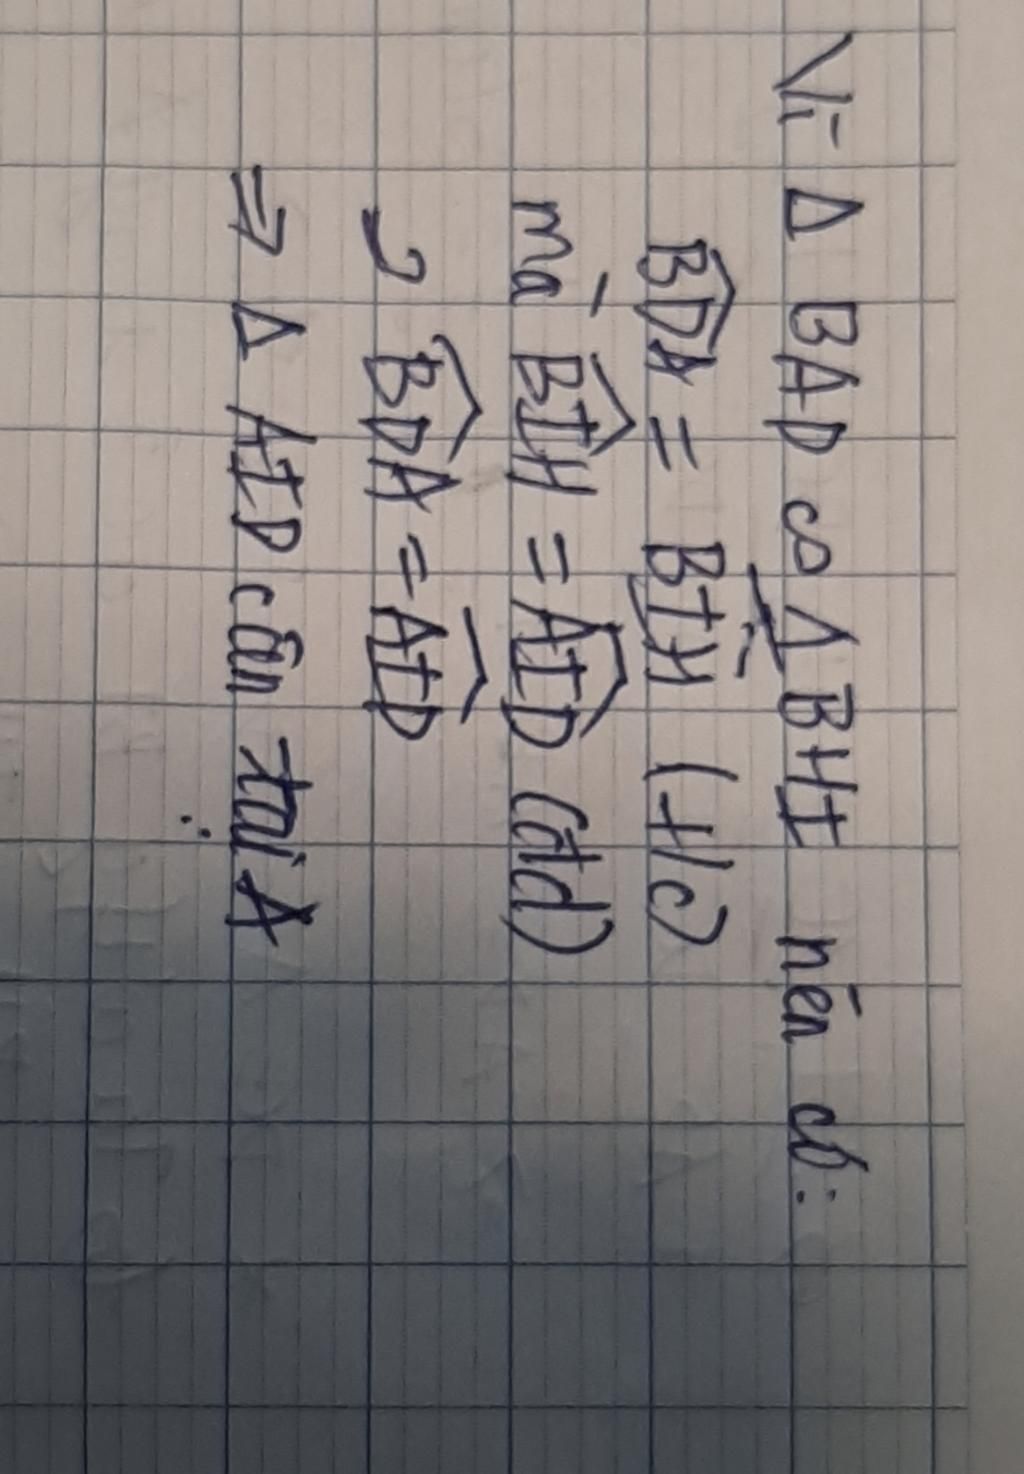 Vì Δ BAD ∽ Δ BHI nên có:
$\widehat{BDA}$ = $\widehat{BIH}$ (t/c)
mà $\widehat{BIH}$ = $\widehat{AID}$ (đđ)
⇒ $\widehat{BDA}$ = $\widehat{AID}$
⇒ Δ AID cân tại A